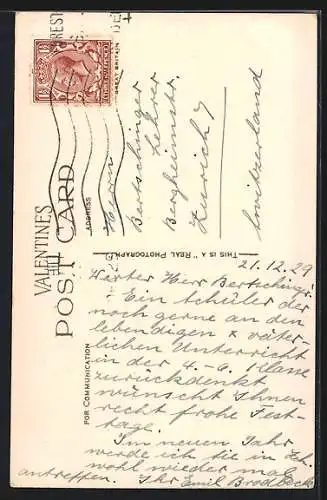 VALENTINES
POST CARD
FOR COMMUNICATION
ADDRESS
THIS IS A "REAL PHOTOGRAPH"
GREAT BRITAIN
1½
1½
Herrn
Bertschinger
Lehrer
Bergheimstr.
Zürich 7
Switzerland
21.12.29
Werter Herr Bertschinger!
Ein Schüler der
noch gerne an den
lebendigen & väter-
lichen Unterricht
in der 4.-6. Klasse
zurückdenkt
wünscht Ihnen
recht frohe Fest-
tage.
Im neuen Jahr
werde ich Sie in Zch.
wohl wieder mal
antreffen. Ihr Emil Brodbeck